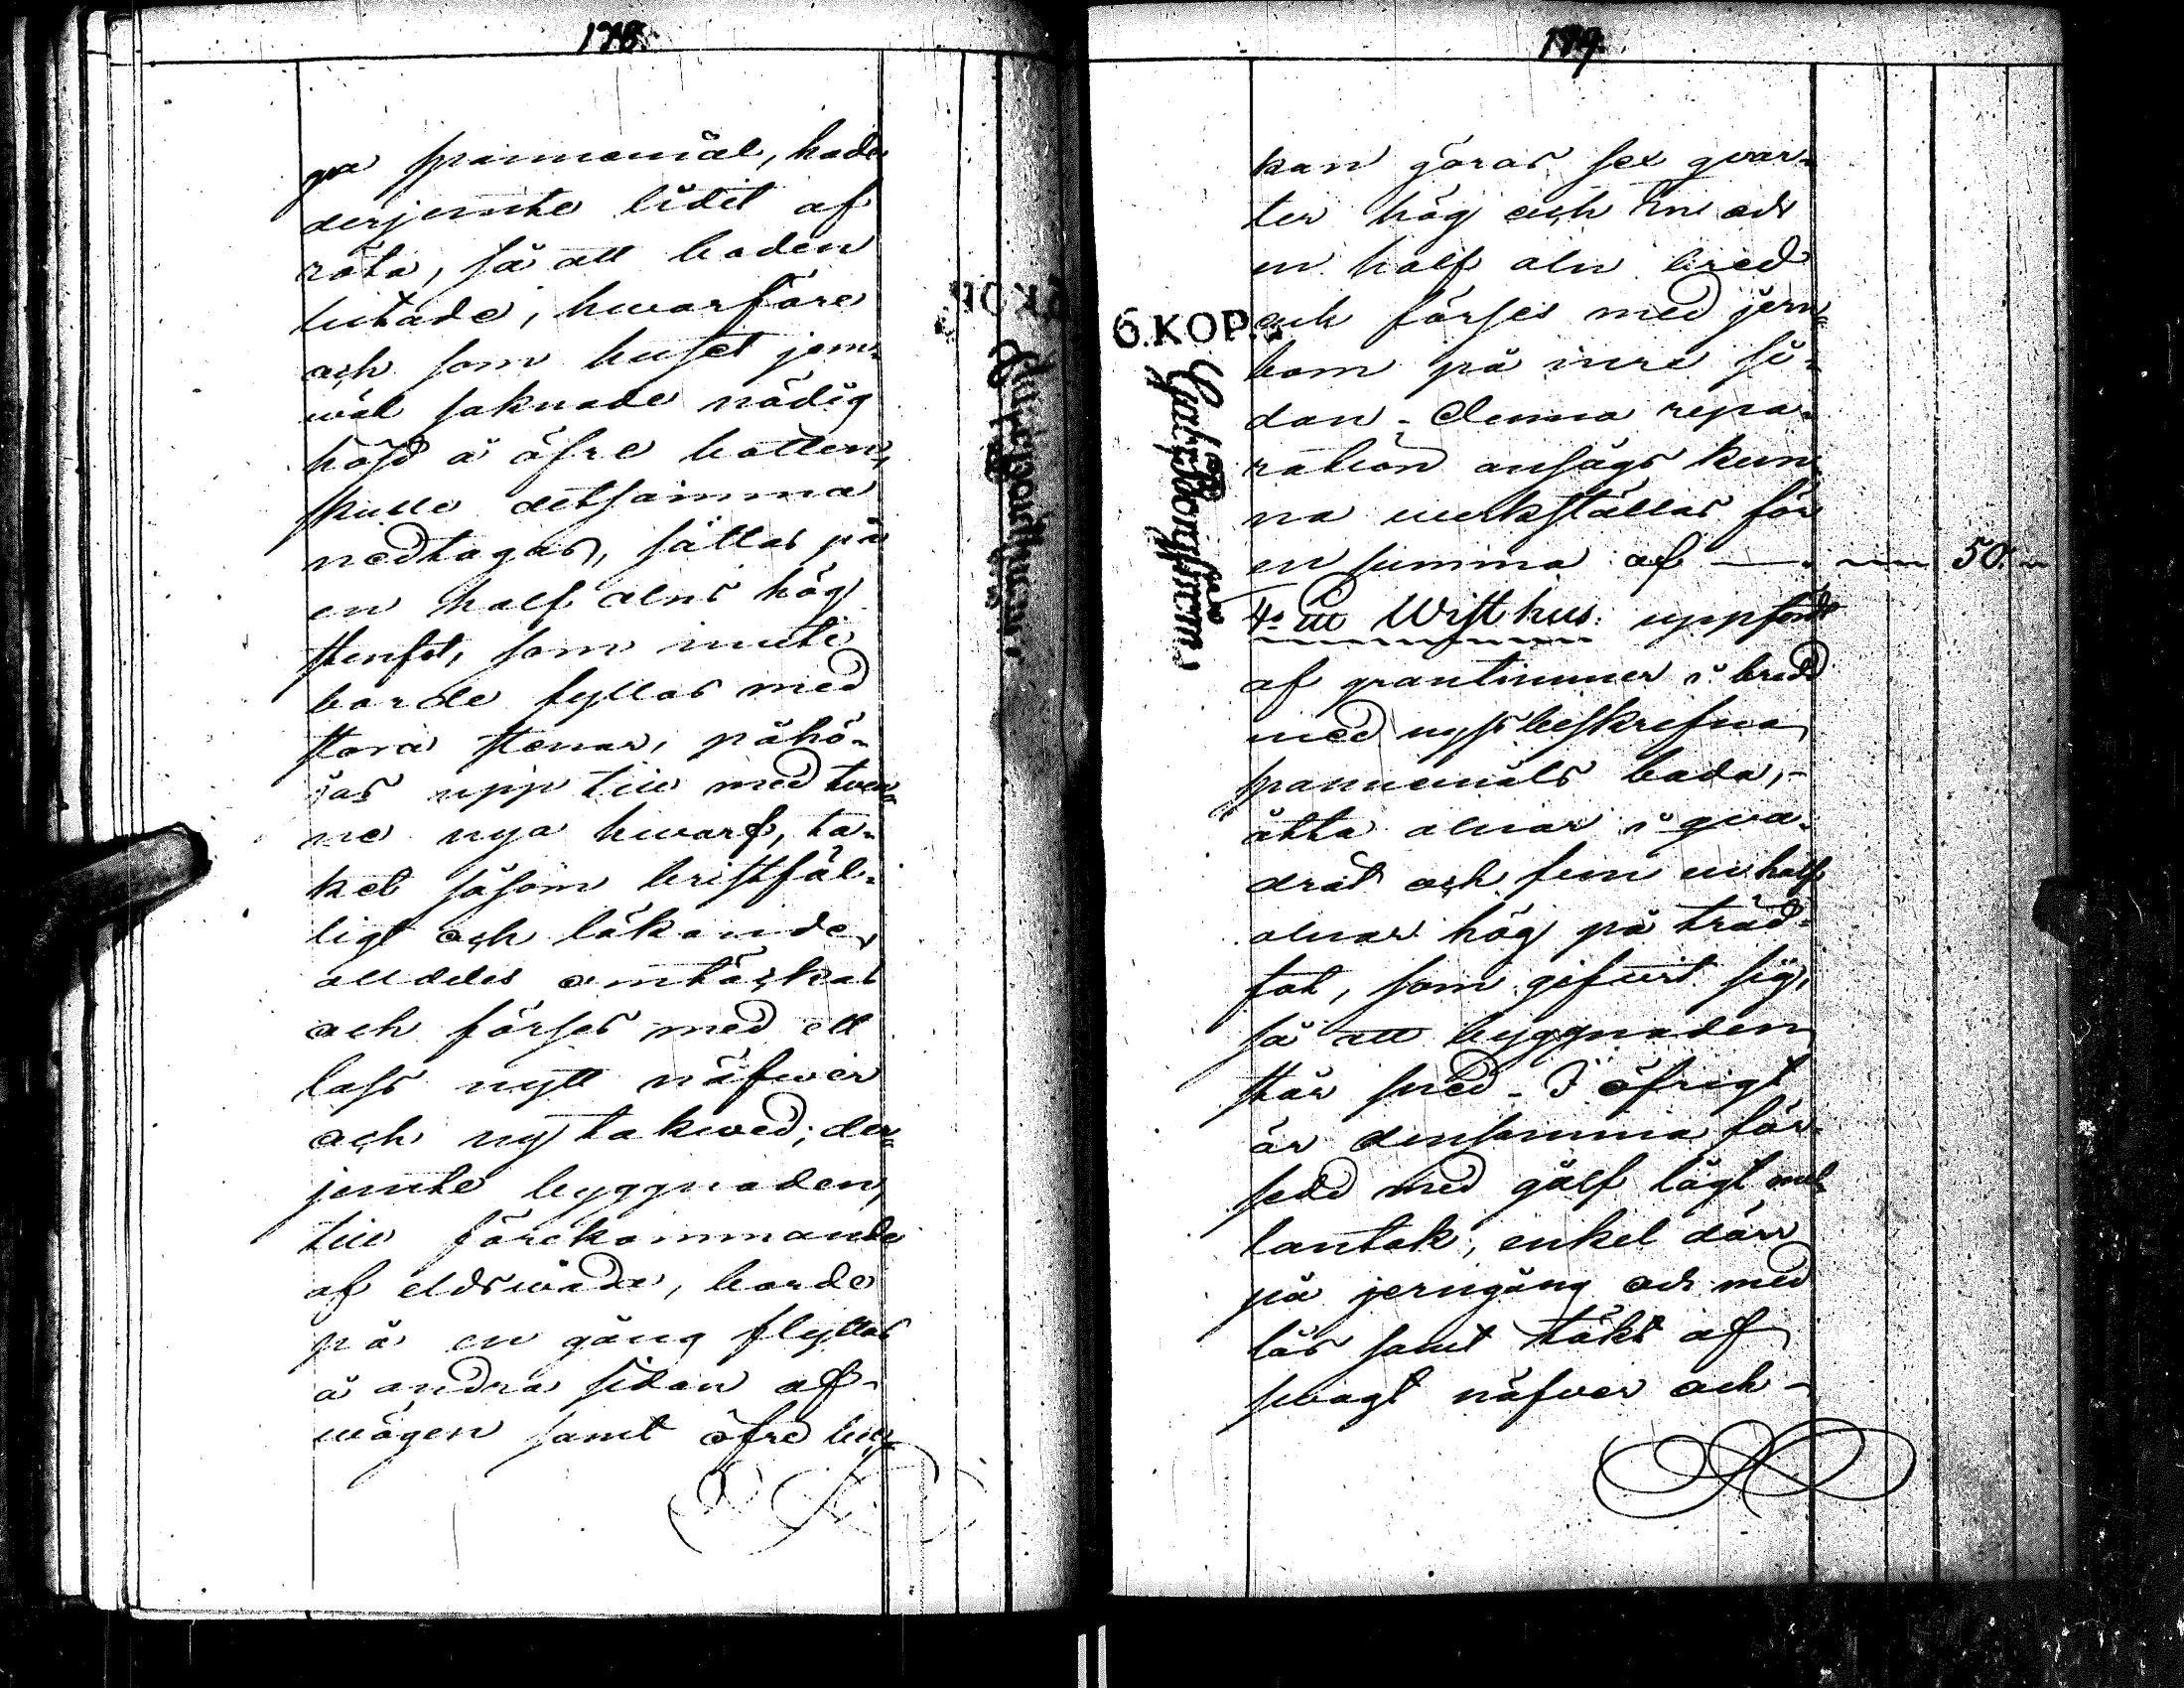 178.
ga spannemål, hade
derjemte lidit af
röta, så att boden
lutade, hwarföre
och som huset jem-
wäl saknade nödig
höjd å öfre botten,
skulle detsamma
nedtagas, sättas på
en half alns hög
stenfot, som inuti
borde fyllas med
stora stenar, påhö-
jas upp till med twen-
ne nya hwarf, ta-
ket såsom bristfäl-
ligt och läkande,
alldeles omtäckas
och förses med ett
lass nytt näfwer
och ny takwed; der-
jemte byggnaden,
till förekommande
af eldswåda, borde
på en gång flyttas
å andra sidan af
wägen samt öfre
179.
kan göras sex qwar-
ter hög och två och
en half aln bred
och förses med jern-
bom på inre si-
dan. Denna repa-
ration ansågs kun-
na werkställas för
en summa af — 50. "
6. KOP.
4:o Ett Wisthus uppfördt
af grantimmer i bredd
med nyss beskrefna
spannemåls boda,
åtta alnar i qwa-
drat och fem en half
alnar hög på träd-
fot, som gifwit sig,
så att byggnaden
står sned. I öfrigt
är densamma för-
sedd med golf lagt mel-
lantak, enkel dörr
på jerngång och med
lås samt täkt af
swagt näfwer och